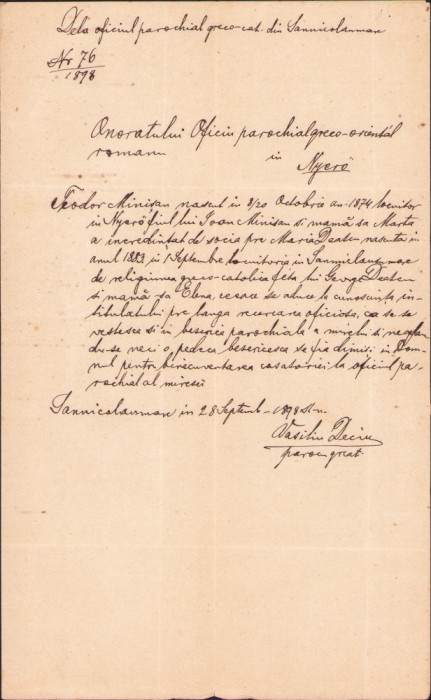 Dela oficiul parochial greco-cat. din Sannicolaumare
Nr 76
1898
Onoratului Oficiu parochial greco-oriental
romanu in Nyerö
Teodor Minisan nascut in 8/20 Octobrie an. 1874 locuitor
in Nyerö fiul lui Ioan Minisan si mamă sa Marta
a incredintat de socia pre Maria nascuta in
anul 1883 in 1 Septembre locuitoria in Sannicolaumare
de religiunea greco-catolica féta lui George
si mamă sa Elena, ceea ce se aduce la cunoscinta in-
stitulatului pre langa recercarea oficiosa, ca se se
vestesca si in beserica parochiala a mirelui si neaflan-
du-se neci o pedeca beserecesca se fia dimisi in Dom-
nul pentru binecuventarea casatoriei la oficiul pa-
rochial al miresei
Sannicolaumare in 28 Septemb. 1898 st. n.
Vasiliu Deciu
paroch gr. cat.